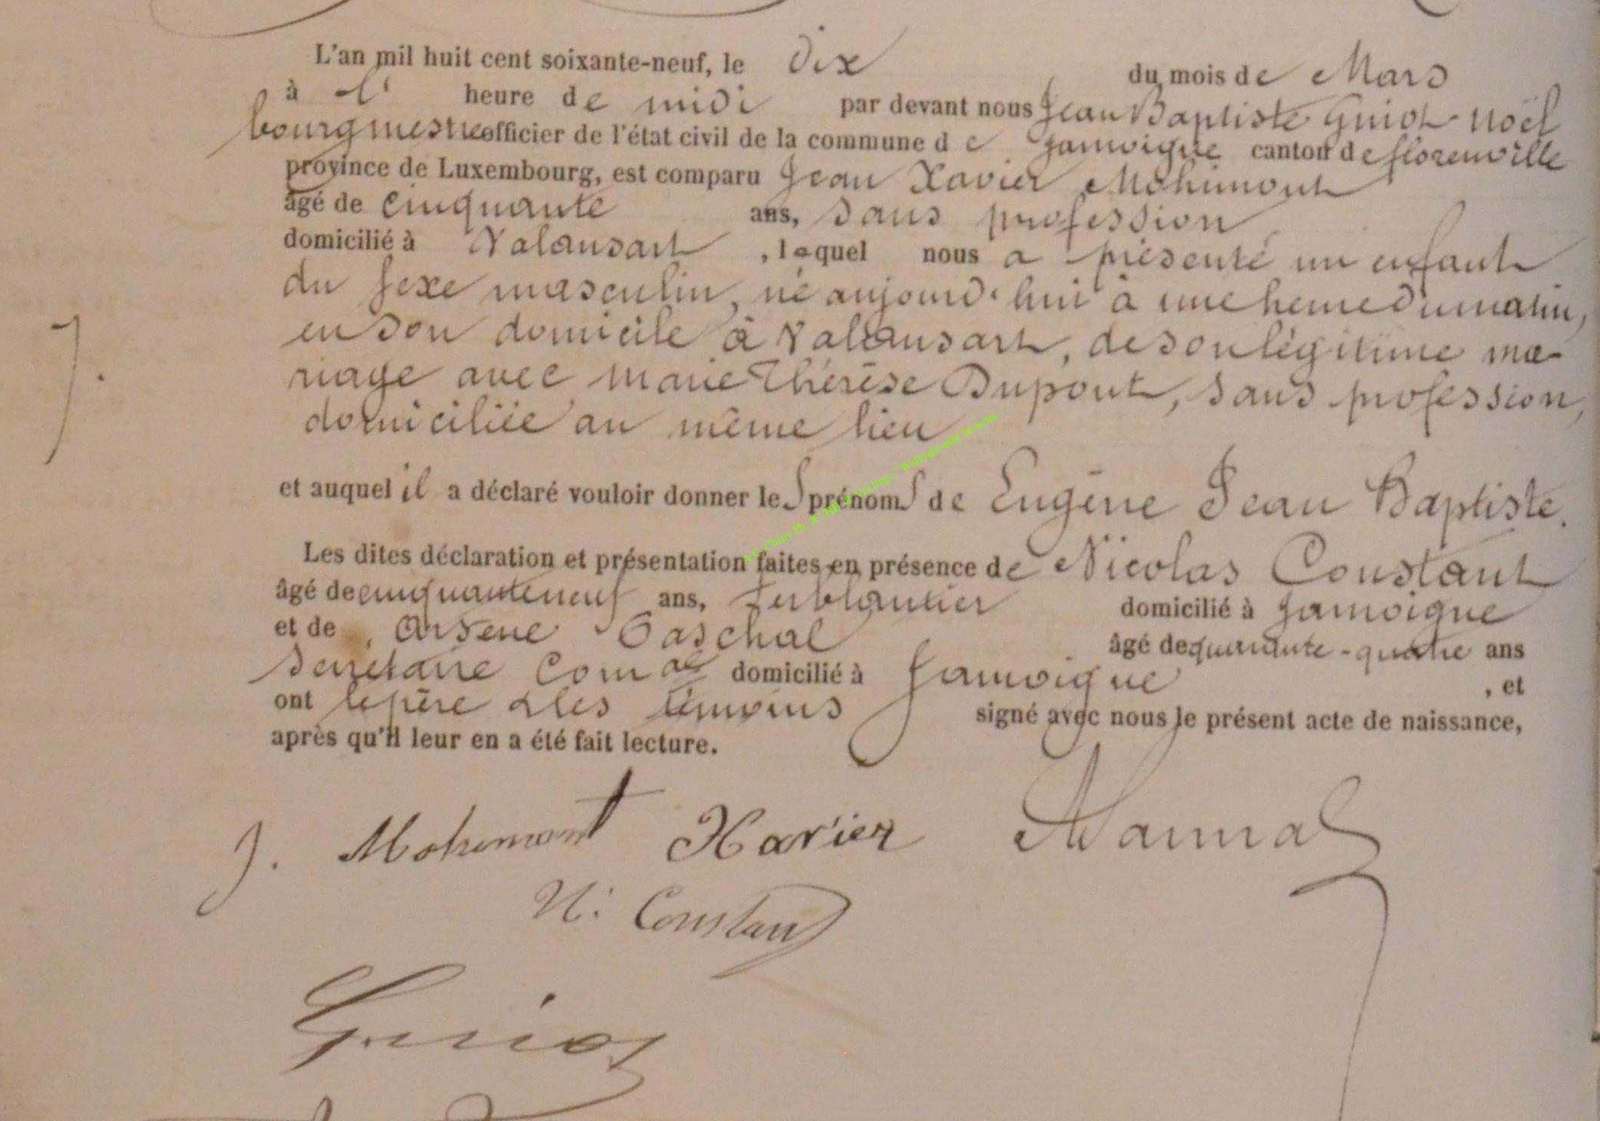 L'an mil huit cent soixante-neuf, le dix du mois de Mars
à l' heure de midi par devant nous Jean Baptiste Guiot Noël
bourgmestre officier de l'état civil de la commune de Jamoigne canton de florenville
province de Luxembourg, est comparu Jean Xavier Mohimont
âgé de cinquante ans, sans profession
domicilié à Valansart, lequel nous a présenté un enfant
du sexe masculin, né aujourd'hui à une heure du matin,
en son domicile à Valansart, de son légitime ma-
riage avec Marie Thérèse Dupont, sans profession,
domiciliée au même lieu
et auquel il a déclaré vouloir donner les prénoms de Eugène Jean Baptiste.
Les dites déclaration et présentation faites en présence de Nicolas Constant
âgé de cinquante neuf ans, ferblantier domicilié à Jamoigne
et de Arsène Paschal âgé de quarante-quatre ans
secrétaire Comal domicilié à Jamoigne, et
ont le père & les témoins signé avec nous le présent acte de naissance,
après qu'il leur en a été fait lecture.
J. Mohimont Xavier
N. Constant
Guiot